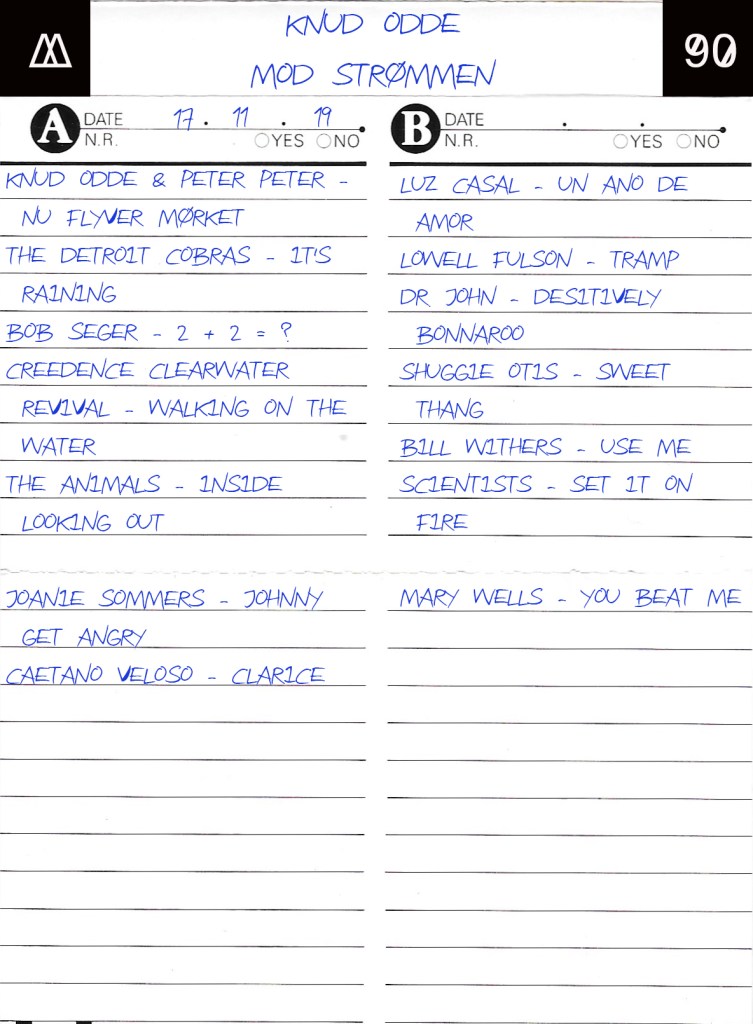 KNUD ODDE
MOD STRØMMEN
90
A DATE 17 . 11 . 19
N.R. YES NO
KNUD ODDE & PETER PETER -
NU FLYVER MØRKET
THE DETROIT COBRAS - IT'S
RAINING
BOB SEGER - 2 + 2 = ?
CREEDENCE CLEARWATER
REVIVAL - WALKING ON THE
WATER
THE ANIMALS - INSIDE
LOOKING OUT
JOANIE SOMMERS - JOHNNY
GET ANGRY
CAETANO VELOSO - CLARICE
B DATE . .
N.R. YES NO
LUZ CASAL - UN ANO DE
AMOR
LOWELL FULSON - TRAMP
DR JOHN - DESITIVELY
BONNAROO
SHUGGIE OTIS - SWEET
THANG
BILL WITHERS - USE ME
SCIENTISTS - SET IT ON
FIRE
MARY WELLS - YOU BEAT ME